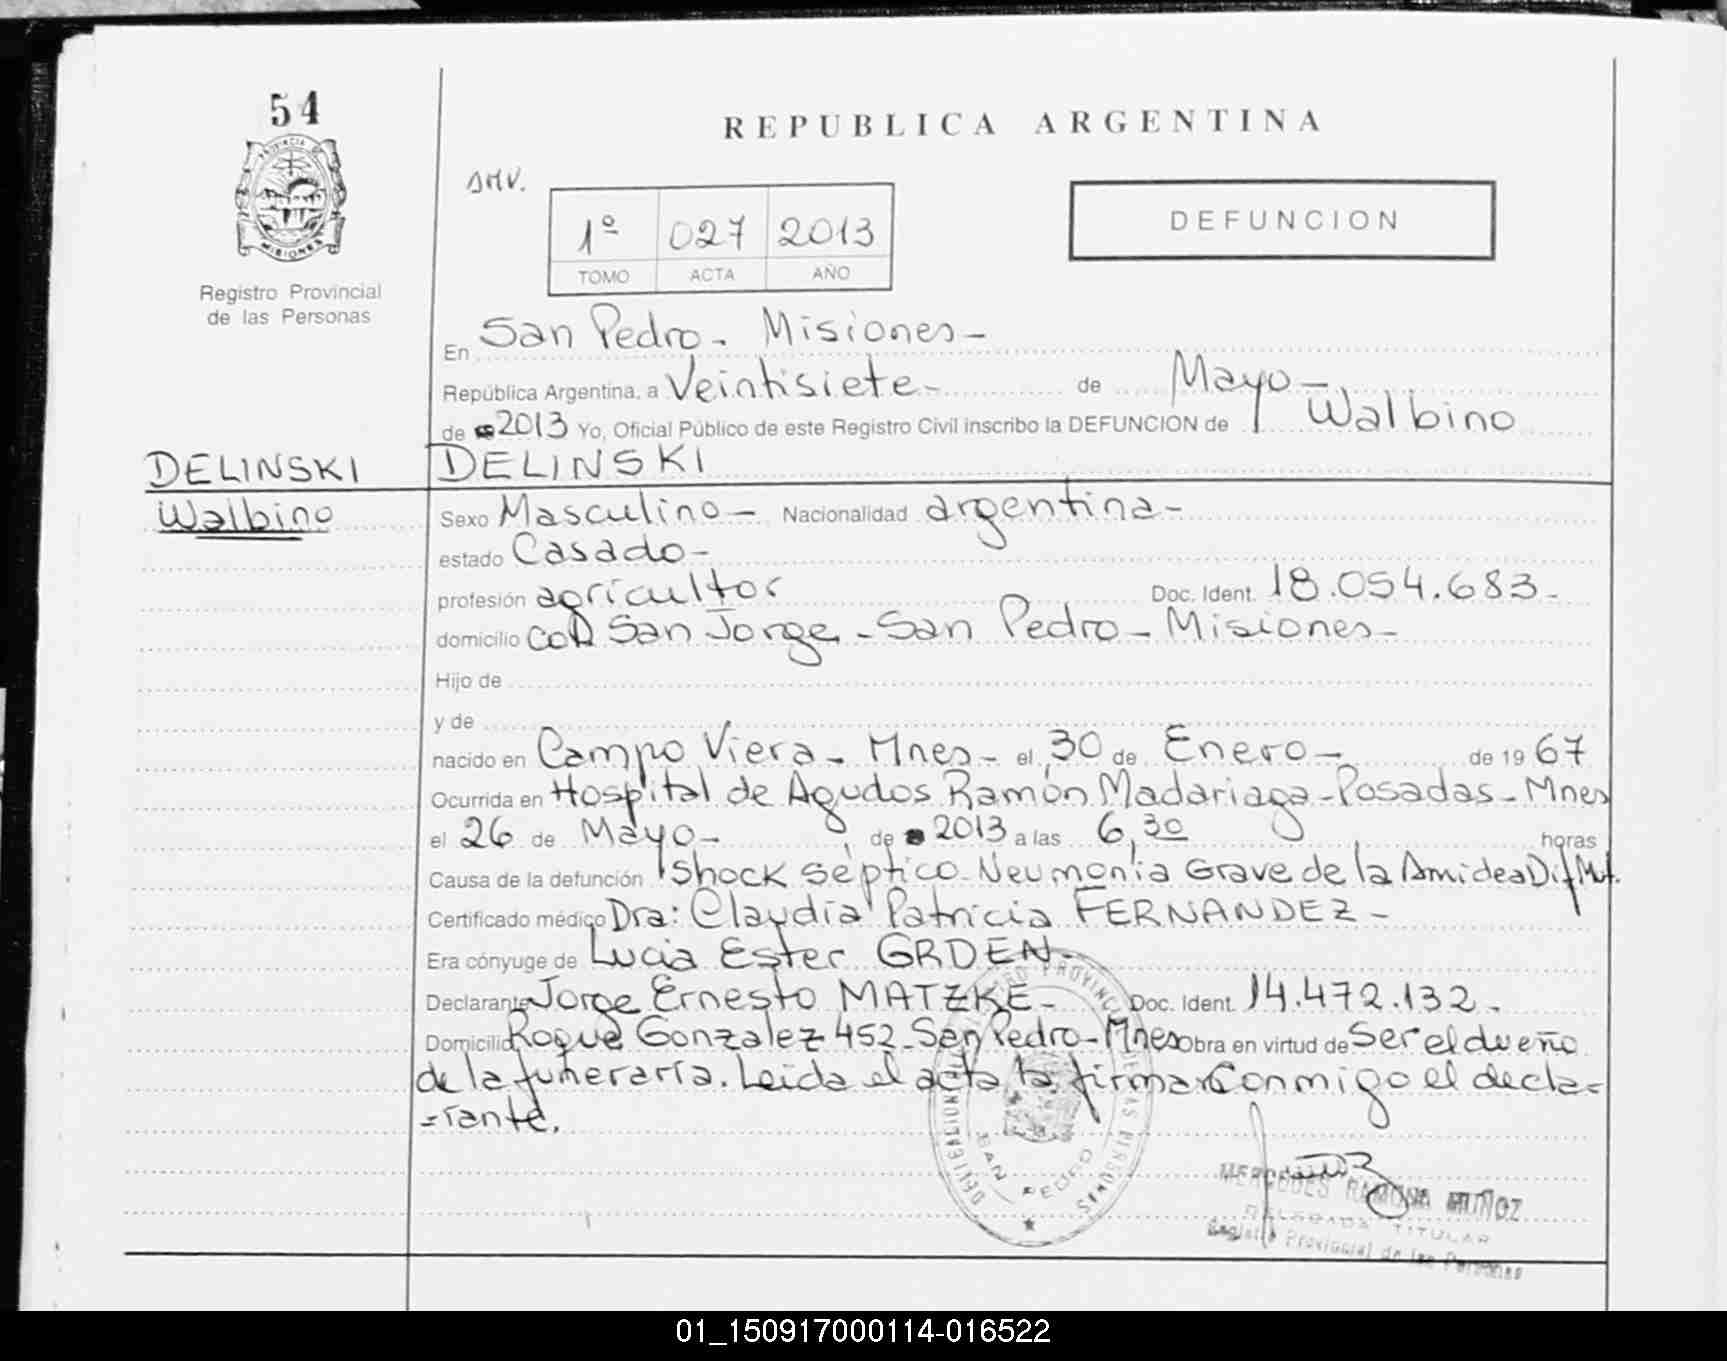 54
PROVINCIA DE
MISIONES
Registro Provincial
de las Personas
REPUBLICA ARGENTINA
DEFUNCION
1º 027 2013
TOMO ACTA AÑO
En San Pedro - Misiones -
República Argentina, a Veintisiete - de Mayo -
de 2013 Yo, Oficial Público de este Registro Civil inscribo la DEFUNCION de Walbino
DELINSKI DELINSKI
Walbino
Sexo Masculino - Nacionalidad argentina -
estado Casado -
profesión agricultor Doc. Ident. 18.054.683 -
domicilio San Jorge - San Pedro - Misiones -
Hijo de
y de
nacido en Campo Viera - Mnes - el 30 de Enero - de 1967
Ocurrida en Hospital de Agudos Ramón Madariaga - Posadas - Mnes
el 26 de Mayo - de 2013 a las 6,30 horas
Causa de la defunción Shock séptico Neumonia Grave de la
Certificado médico Dra: Claudia Patricia FERNANDEZ -
Era cónyuge de Lucia Ester GRDEN -
Declarante Jorge Ernesto MATZKE - Doc. Ident. 14.472.132 -
Domicilio Roque Gonzalez 452 - San Pedro - Mnes Obra en virtud de Ser el dueño
de la funeraria. Leida el acta la firma Conmigo el decla=
=rante.
SAN PEDRO
MERCEDES RAMONA MUÑOZ
DELEGADA TITULAR
Registro Provincial de las Personas
01_150917000114-016522